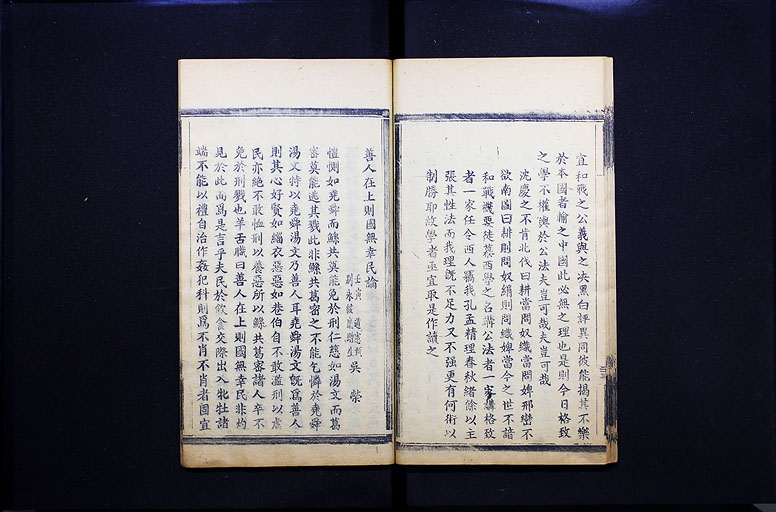 宜和戰之公義與之决黑白評異同彼能揚其不樂
於本國者輸之中國此必無之理也是則今日格致
之學不權輿於公法夫豈可哉夫豈可哉
沈慶之不肯北伐曰耕當問奴織當問婢邢巒不
欲南圖曰耕則問奴絹則問織婢當今之世不諳
和戰機要徒慕西學之名講公法者一家講格致
者一家任令西人竊我孔孟精理春秋緒餘以主
張其性法而我理旣不足力又不强更有何術以
制勝耶故學者亟宜取是作讀之
善人在上則國無幸民論
壬寅
吳榮
愷惻如堯舜而鯀共莫能免於刑仁慈如湯文而葛
密莫能逃其戮此非鯀共葛密之不能乞憐於堯舜
湯文特以堯舜湯文乃善人耳堯舜湯文旣爲善人
則其心好賢如緇衣惡惡如巷伯自不敢濫刑以虐
民亦絕不敢恤刑以養惡所以鯀共葛密諸人卒不
免於刑戮也羊舌職曰善人在上則國無幸民非灼
見於此而爲是言乎夫民於飲食交際出入牝牡諸
端不能以禮自治作姦犯科則爲不肖不肖者國宜